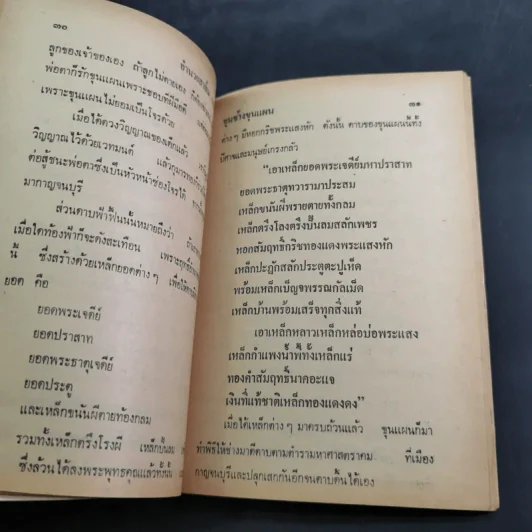 ๓๐
ลูกของเจ้าของเอง ถ้าลูกไม่ตายเอง
พ่อตาก็รักขุนแผนเพราะชอบที่มีฝีมือดี
เพราะขุนแผนไม่ยอมเป็นโจรด้วย
เมื่อได้ดวงวิญญาณของเด็กแล้ว
วิญญาณไว้ด้วยเวทมนต์ แล้วกุมารทอง
ต่อสู้ชนะพ่อตาซึ่งเป็นหัวหน้าซ่องโจรได้
มากาญจนบุรี
ส่วนดาบฟ้าฟื้นนั้นหมายถึงว่า
เมื่อใดท้องฟ้าก็จะดังสะเทือน
นี้ ซึ่งสร้างด้วยเหล็กยอดต่าง ๆ
ยอด คือ
ยอดพระเจดีย์
ยอดปราสาท
ยอดพระธาตุเจดีย์
ยอดประตู
และเหล็กขนันผีตายท้องกลม
รวมทั้งเหล็กตรึงโรงผี
ซึ่งล้วนได้ลงพระพุทธคุณแล้วทั้งนั้น
ขุนช้างขุนแผน ๓๑
ต่าง ๆ มีหอกกริชพระแสงหัก ดังนั้น ดาบของขุนแผนนี้ทั้ง
ปีศาจและมนุษย์เกรงกลัว
“เอาเหล็กยอดพระเจดีย์มหาปราสาท
ยอดพระธาตุทวารามาประสม
เหล็กขนันผีพรายตายทั้งกลม
เหล็กตรึงโลงตรึงปั้นลมสลักเพชร
หอกสัมฤทธิ์กริชทองแดงพระแสงหัก
เหล็กปะฏักสลักประตูตะปูเห็ด
พร้อมเหล็กเบ็ญจพรรณกัลเม็ด
เหล็กบ้านพร้อมเสร็จทุกสิ่งแท้
เอาเหล็กหลาวเหล็กหล่อบ่อพระแสง
เหล็กกำแพงน้ำพี้ทั้งเหล็กแร่
ทองคำสัมฤทธิ์นาคอะแจ
เงินที่แท้ชาติเหล็กทองแดงดง”
เมื่อได้เหล็กต่าง ๆ มาครบถ้วนแล้ว ขุนแผนก็มา
ทำพิธีให้ช่างมาตีดาบตามตำรามหาศาตราคม ที่เมือง
กาญจนบุรีและปลุกเสกกันอีกจนดาบดิ้นได้เอง